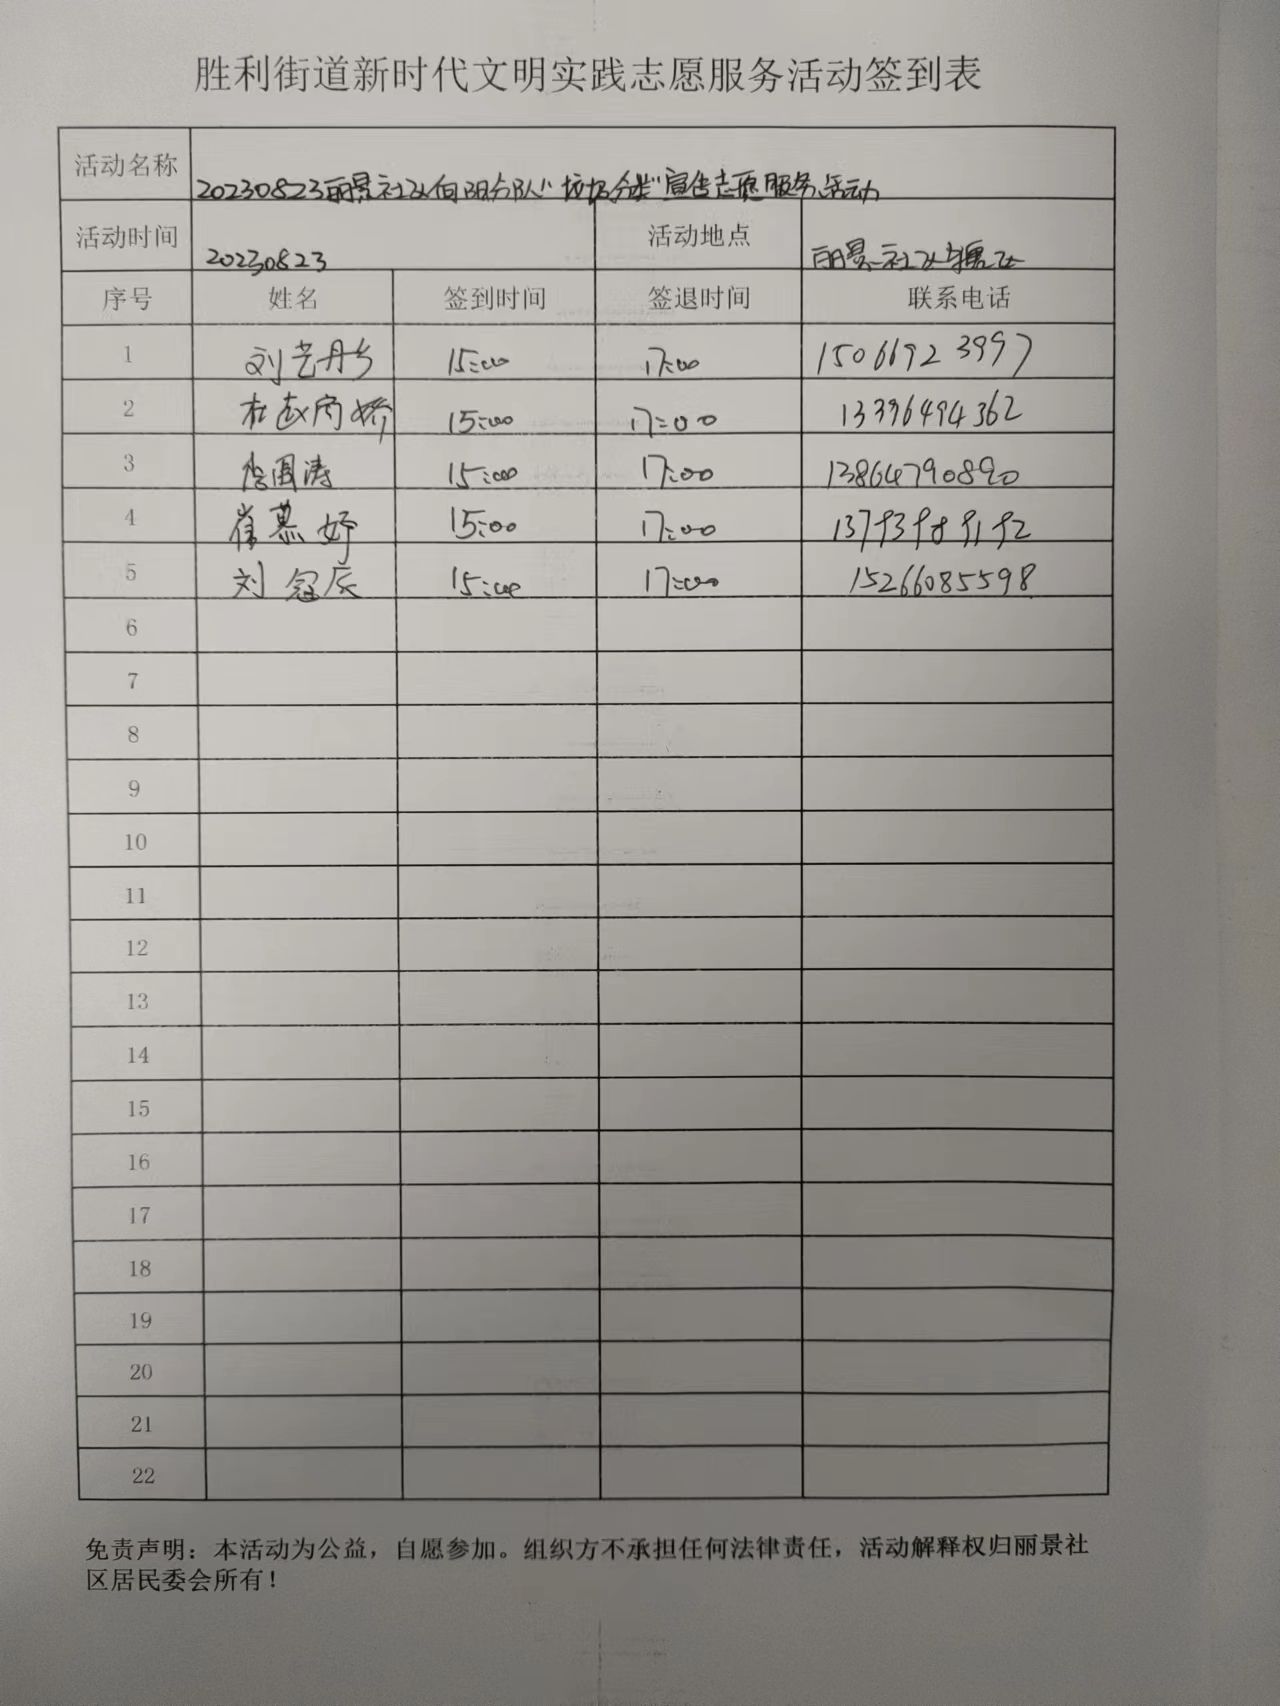 胜利街道新时代文明实践志愿服务活动签到表
活动名称 20230823丽景社区向阳分队"垃圾分类"宣传志愿服务活动
活动时间 20230823 活动地点 丽景社区辖区
序号 姓名 签到时间 签退时间 联系电话
1 刘艺丹 15:00 17:00 15066923997
2 杜赵 娇 15:00 17:00 13396494362
3 国涛 15:00 17:00 13864790890
4 崔慕妤 15:00 17:00
5 刘冠辰 15:00 17:00 15266085598
6
7
8
9
10
11
12
13
14
15
16
17
18
19
20
21
22
免责声明：本活动为公益，自愿参加。组织方不承担任何法律责任，活动解释权归丽景社
区居民委会所有！